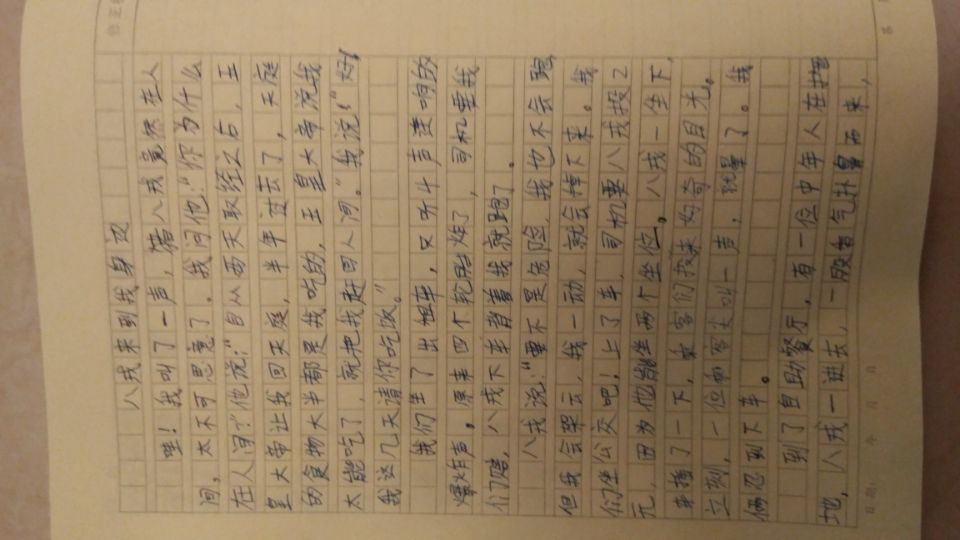 八戒来到我身边
哇！我叫了一声，猪八戒竟然在人
间，太不可思意了。我问他：“你为什么
在人间？”他说：“自从西天取经之后，玉
皇大帝让我回天庭，半年过去了，天庭
的食物大半都是我吃的，玉皇大帝说我
太能吃了，就把我赶回人间。”我说：“好，
我这几天请你吃饭。”
我们坐了出租车，只听4声责响的
爆炸声。原来四个轮胎炸了，司机要我
们赔，八戒下车背着我就跑了。
八我说：“要不是危险，我也不会跑
但我会架云，我一动，就会掉下来。我
们坐公交吧！上了车，司机要八戒投2
元，因为他能坐两个坐位。八戒一坐下，
车播了一下，乘客们投来好奇的目光。
立刻，一位乘客大叫一声，就晕了。我
俩忍到下车。
到了自助餐厅，有一位中年人在拖
地，八戒一进去，一股香气扑鼻而来，
日期： 年 月 日